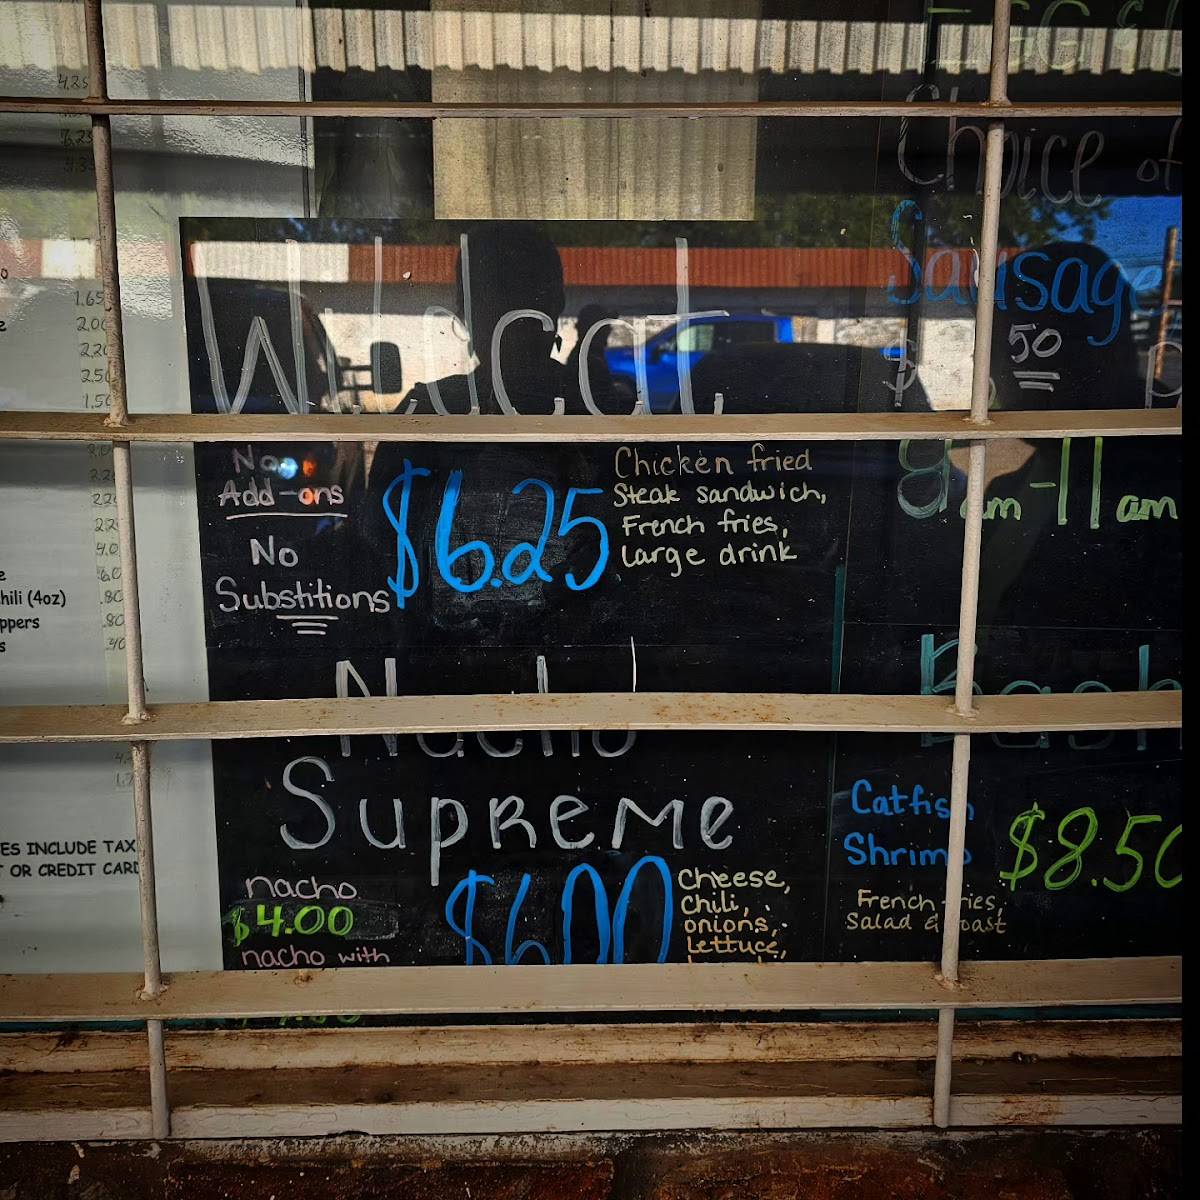 4.25
6.25
1.65
2.00
2.20
2.50
1.50
hili (4oz)
.80
ppers
.80
ES INCLUDE TAX
T OR CREDIT CARD
Wildcat
No
Add-ons
No
Substitions
$6.25
Chicken fried
Steak sandwich,
French fries,
Large drink
Nacho
Supreme
nacho
$4.00
nacho with
$6.00
Cheese,
chili,
onions,
Lettuce,
EGG &
Choice of
Sausage
$ 50
9am-11am
Bask
Catfish
Shrimp
$8.50
French fries,
Salad & toast